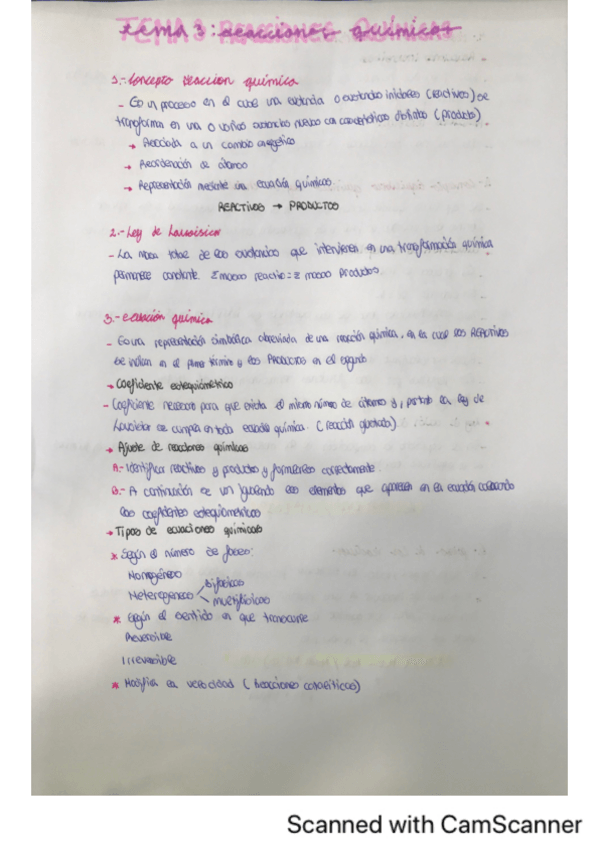 TEMA 3: Reacciones químicas
1.- Concepto reaccion química
- Es un proceso en el cual una sustancia o sustancias iniciales (reactivos) se
transforma en una o varias sustancias nuevas con características distintas (producto)
→ Asociada a un cambio energético
→ Reordenación de átomos
→ Representación mediante una ecuación químicas
REACTIVOS → PRODUCTOS
2.- Ley de Lavoisier
- La masa total de las sustancias que intervienen en una transformación química
permanece constante. Σ masas reactivo = Σ masas productos
3.- ecuación química
- Es una representación simbólica abreviada de una reacción química, en la cual los REACTIVOS
se indican en el primer término y los PRODUCTOS en el segundo
→ Coeficiente estequiométrico
- Coeficiente necesario para que exista el mismo número de átomos y, por tanto la ley de
Lavoisier se cumpla en toda ecuación química. (reacción ajustada)
→ Ajuste de reacciones químicas
A.- Identificar reactivos y productos y formularlos correctamente
B.- A continuación se van igualando los elementos que aparecen en la ecuación colocando
los coeficientes estequiométricos
→ Tipos de ecuaciones químicas
* Según el número de fases:
Homogéneo
Heterogeneo bifásicas
multifásicas
* Según el sentido en que transcurre
Reversible
Irreversible
* Modifica la velocidad (Reacciones catalíticas)
Scanned with CamScanner